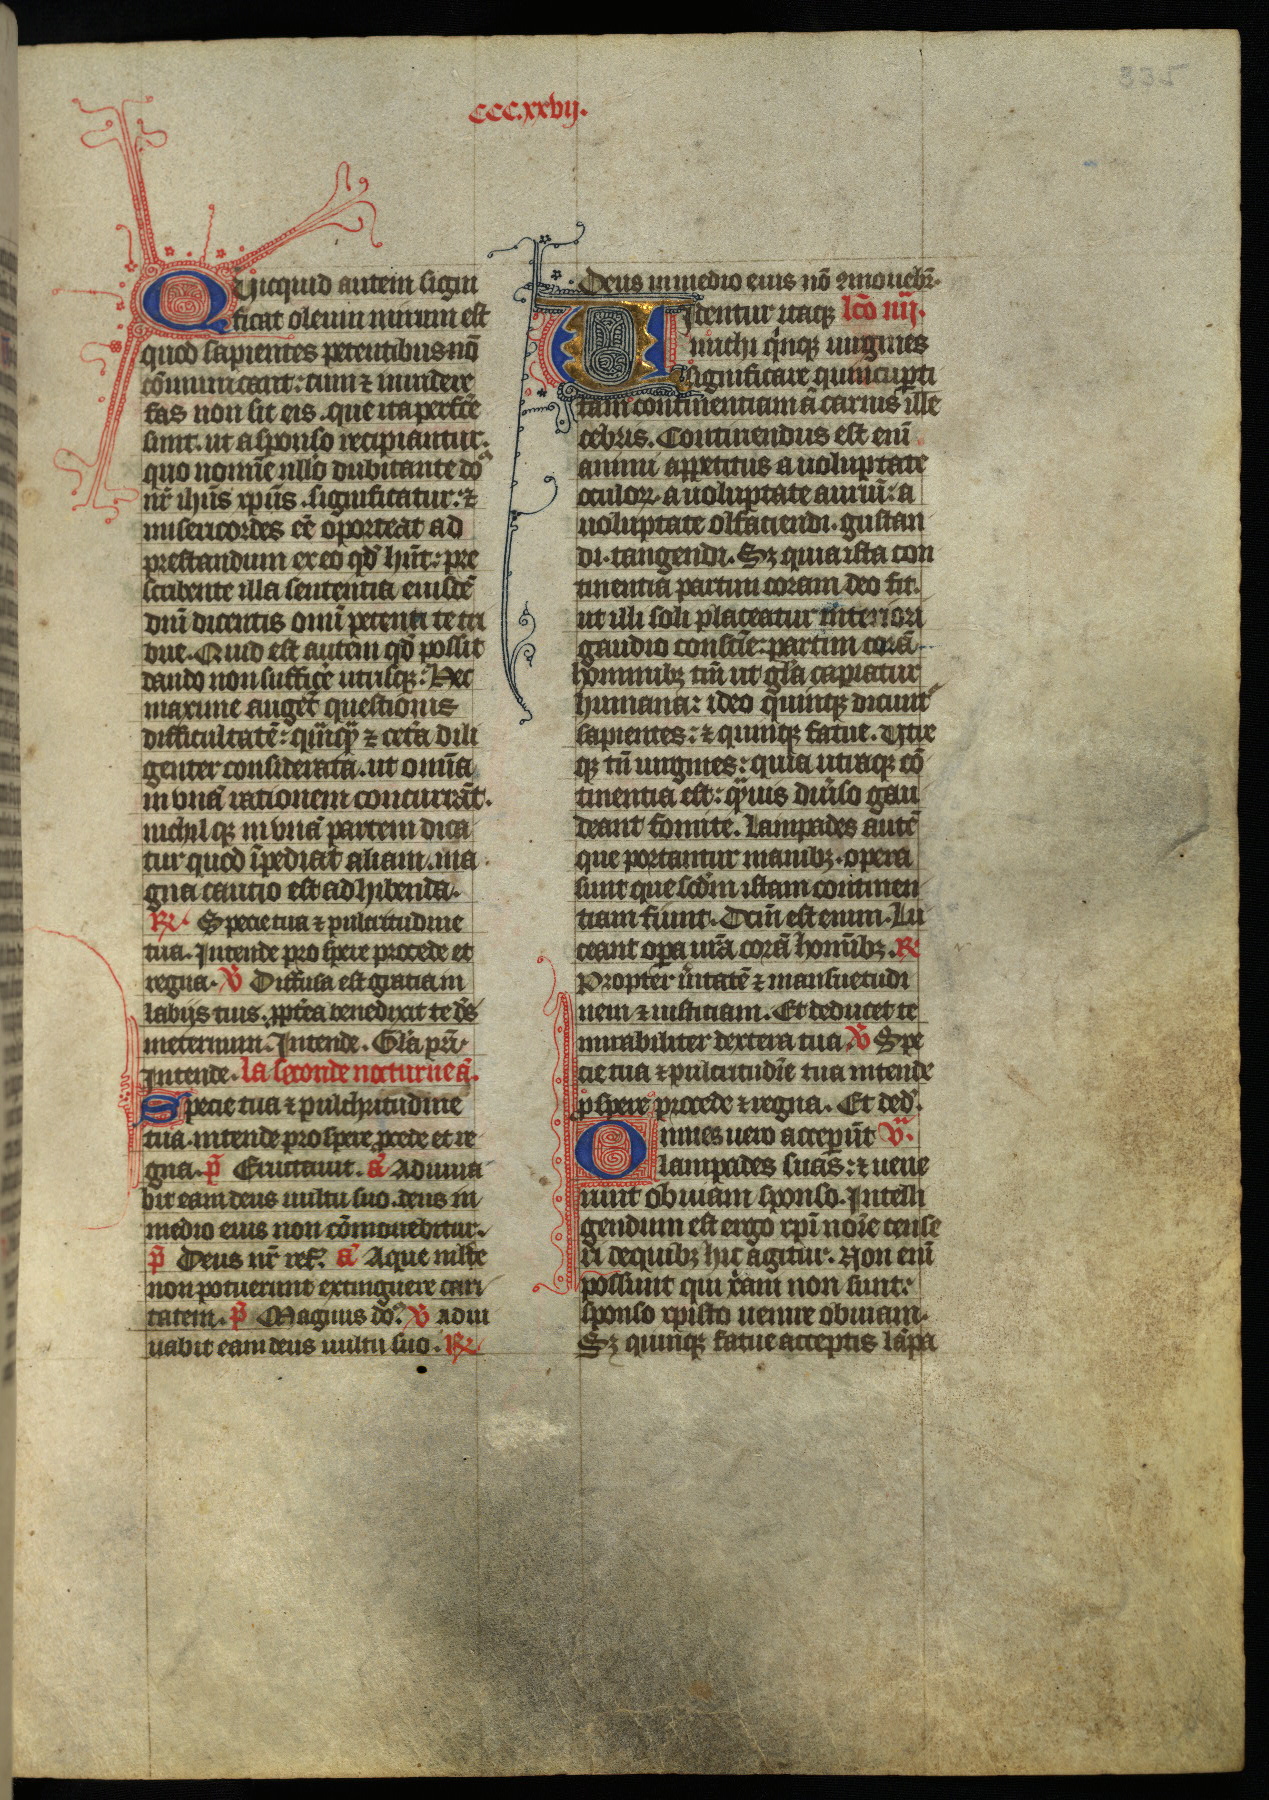 335
ccc.xxvij.
Quicquid autem signi
ficat oleum mirum est
quod sapientes petentibus nō
cōmunicant: cum ⁊ inuidere
fas non sit eis. que ita perfcē
sunt. ut a sponso recipiantur.
quo nomīe nullo dubitante dō
nr̄ ihūs xpūs. significatur: ⁊
misericordes eē oporteat ad
prestandum ex eo qd̄ hn̄t: pre
scibente illa sententia eiusdē
dnī dicentis omī petenti te tri
bue. Quid est autem qd̄ possit
dando non sufficē utrisq;: Hec
maxime auget̄ questionis
difficultatē:
genter considerata. ut omīa
in vnā rationem concurrāt.
nichil q; in vnā partem dica
tur quod īpediat aliam. ma
gna cautio est adhibenda.
R̄. Specie tua ⁊ pulcritudine
tua. Intende prospere procede et
regna. V̄ Diffusa est gratia in
labijs tuis. ꝓpt̄ea benedixit te dʼs
in eternum. Intende. Glʼa pr̄i.
Intende. la seconde nocturne ā.
Specie tua ⁊ pulchritudine
tua. intende prospere ꝓcede et re
gna. p̄ Eructauit. ā Adiuua
bit eam deus uultu suo. deus in
medio eius non cōmouebitur.
p̄ Deus nr̄ ref. ā Aque multe
non potuerunt extinguere cari
tatem. p̄ Magnus dō. V̄ adiu
uabit eam deus uultu suo. R̄
Deus in medio eius nō ꝯmouebr̄.
Uidentur itaq; lc̄o iiij.
michi q̄nq; uirgines
significare quincuꝑti
tam continentiam a carnis ille
cebris. Continendus est enī
animi appetitus a uoluptate
oculoꝝ. a uoluptate auriū: a
uoluptate olfaciendi. gustan
di. tangendi. Sꝫ quia ista con
tinentia partim coram deo fit.
ut illi soli placeatur interiori
gaudio consciē: partim corā
hominibꝫ tm̄ ut glʼa capiatur
humana: ideo quinq; dicunt̄
sapientes: ⁊ quinq; fatue. Vtre
q; tn̄ uirgines: quia utraq; cō
tinentia est: q̄ʼuis diu̓so gau
deant fomite. Lampades autē
que portantur manibꝫ. opera
sunt que scd̄m istam continen
tiam fiunt. Dc̄m est enim. Lu
ceant opa ur̄a corā homībꝫ. R̄
Propter ūitatē ⁊ mansuetudi
nem ⁊ iusticiam. Et deducet te
mirabiliter dextera tua. V̄ Spe
cie tua ⁊ pulcritudīe tua intende
ꝓspere procede ⁊ regna. Et ded̄.
Omnes uero acceper̄ūt v̄.
lampades suas: ⁊ uene
runt obuiam sponso. Intelli
gendum est ergo xpī noīe cense
ri de quibꝫ hic agitur. Non enī
possunt qui xʼani non sunt:
sponso xpisto uenire obuiam.
Sꝫ quinq; fatue acceptis lāpa